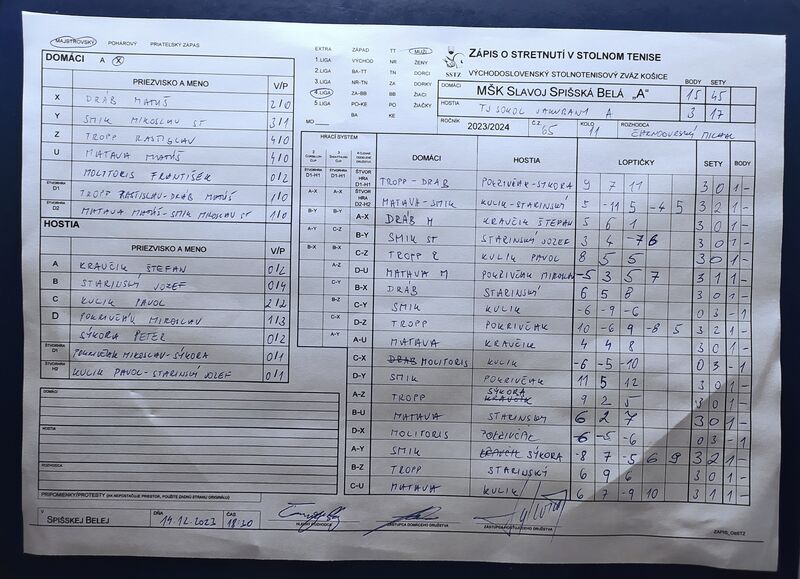 MAJSTROVSKÝ POHÁROVÝ PRIATEĽSKÝ ZÁPAS
DOMÁCI A X
PRIEZVISKO A MENO V/P
X DRÁB MATÚŠ 2/0
Y SMIK MIROSLAV ST 3/1
Z TROPP RASTISLAV 4/0
U MATAVA MATÚŠ 4/0
MOLITORIS FRANTIŠEK 0/2
ŠTVORHRA D1 TROPP RASTISLAV-DRÁB MATÚŠ 1/0
ŠTVORHRA D2 MATAVA MATÚŠ-SMIK MIROSLAV ST 1/0
HOSTIA
PRIEZVISKO A MENO V/P
A KRAVČÍK ŠTEFAN 0/2
B STARINSKÝ JOZEF 0/4
C KULIK PAVOL 2/2
D POKRIVČÁK MIROSLAV 1/3
SÝKORA PETER 0/2
ŠTVORHRA POKRIVČÁK MIROSLAV-SÝKORA 0/1
ŠTVORHRA H2 KULIK PAVOL-STARINSKÝ JOZEF 0/1
DOMÁCI
HOSTIA
ROZHODCA
PRIPOMIENKY/PROTESTY (AK NEPOSTAČUJE PRIESTOR, POUŽITE ZADNÚ STRANU ORIGINÁLU)
V SPIŠSKEJ BELEJ DŇA 14.12.2023 ČAS 18:30
HLAVNÝ ROZHODCA ZÁSTUPCA DOMÁCEHO DRUŽSTVA ZÁSTUPCA HOSŤUJÚCEHO DRUŽSTVA
EXTRA ZÁPAD TT MUŽI
1.LIGA VÝCHOD NR ŽENY
2.LIGA BA-TT TN DORCI
3.LIGA NR-TN ZA DORKY
4.LIGA ZA-BB BB ŽIACI
5.LIGA PO-KE PO ŽIAČKY
MO BA KE
SSTZ
ZÁPIS O STRETNUTÍ V STOLNOM TENISE
VÝCHODOSLOVENSKÝ STOLNOTENISOVÝ ZVÄZ KOŠICE
BODY SETY
MŠK SLAVOJ SPIŠSKÁ BELÁ „A" 15 45
HOSTIA TJ SOKOL JAKUBANY A 3 17
ROČNÍK 2023/2024 Č.Z. 65 KOLO 11 ROZHODCA
HRACÍ SYSTÉM DOMÁCI HOSTIA LOPTIČKY SETY BODY
D1-H1 D1-H1 ŠTVORHRA D1-H1 TROPP-DRÁB POKRIVČÁK-SÝKORA 9 7 11 3 0 1 -
A-X A-X ŠTVORHRA D2-H2 MATAVA-SMIK KULIK-STARINSKÝ 5 -11 5 -4 5 3 2 1 -
B-Y B-Y A-X DRÁB M KRAVČÍK ŠTEFAN 5 6 1 3 0 1 -
A-Y C-Z B-Y SMIK ST STARINSKÝ JOZEF 3 4 -7 6 3 0 1 -
B-X B-X C-Z TROPP R KULIK PAVOL 8 5 5 3 0 1 -
A-Z D-U MATAVA M POKRIVČÁK MIROSLAV -5 3 5 7 3 1 1 -
C-Y B-X DRÁB STARINSKÝ 6 5 8 3 0 1 -
B-Z C-Y SMIK KULIK -6 -9 -6 0 3 - 1
C-X D-Z TROPP POKRIVČÁK 10 -6 9 -8 5 3 2 1 -
A-Y A-U MATAVA KRAVČÍK 4 4 8 3 0 1 -
C-X DRÁB MOLITORIS KULIK -6 -5 -10 0 3 - 1
D-Y SMIK POKRIVČÁK 11 5 12 3 0 1 -
A-Z TROPP SÝKORA KRAVČÍK 9 2 5 3 0 1 -
B-U MATAVA STARINSKÝ 6 2 7 3 0 1 -
D-X MOLITORIS POKRIVČÁK -6 -5 -6 0 3 - 1
A-Y SMIK KRAVČÍK SÝKORA -8 7 -5 6 9 3 2 1 -
B-Z TROPP STARINSKÝ 6 9 6 3 0 1 -
C-U MATAVA KULIK 6 7 -9 10 3 1 1 -
ZAPIS_OstTZ